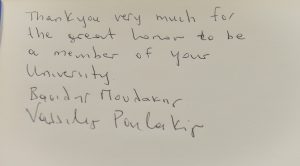 Thank you very much for
the great honor to be
a member of your
University.
Vassilis Poulakis